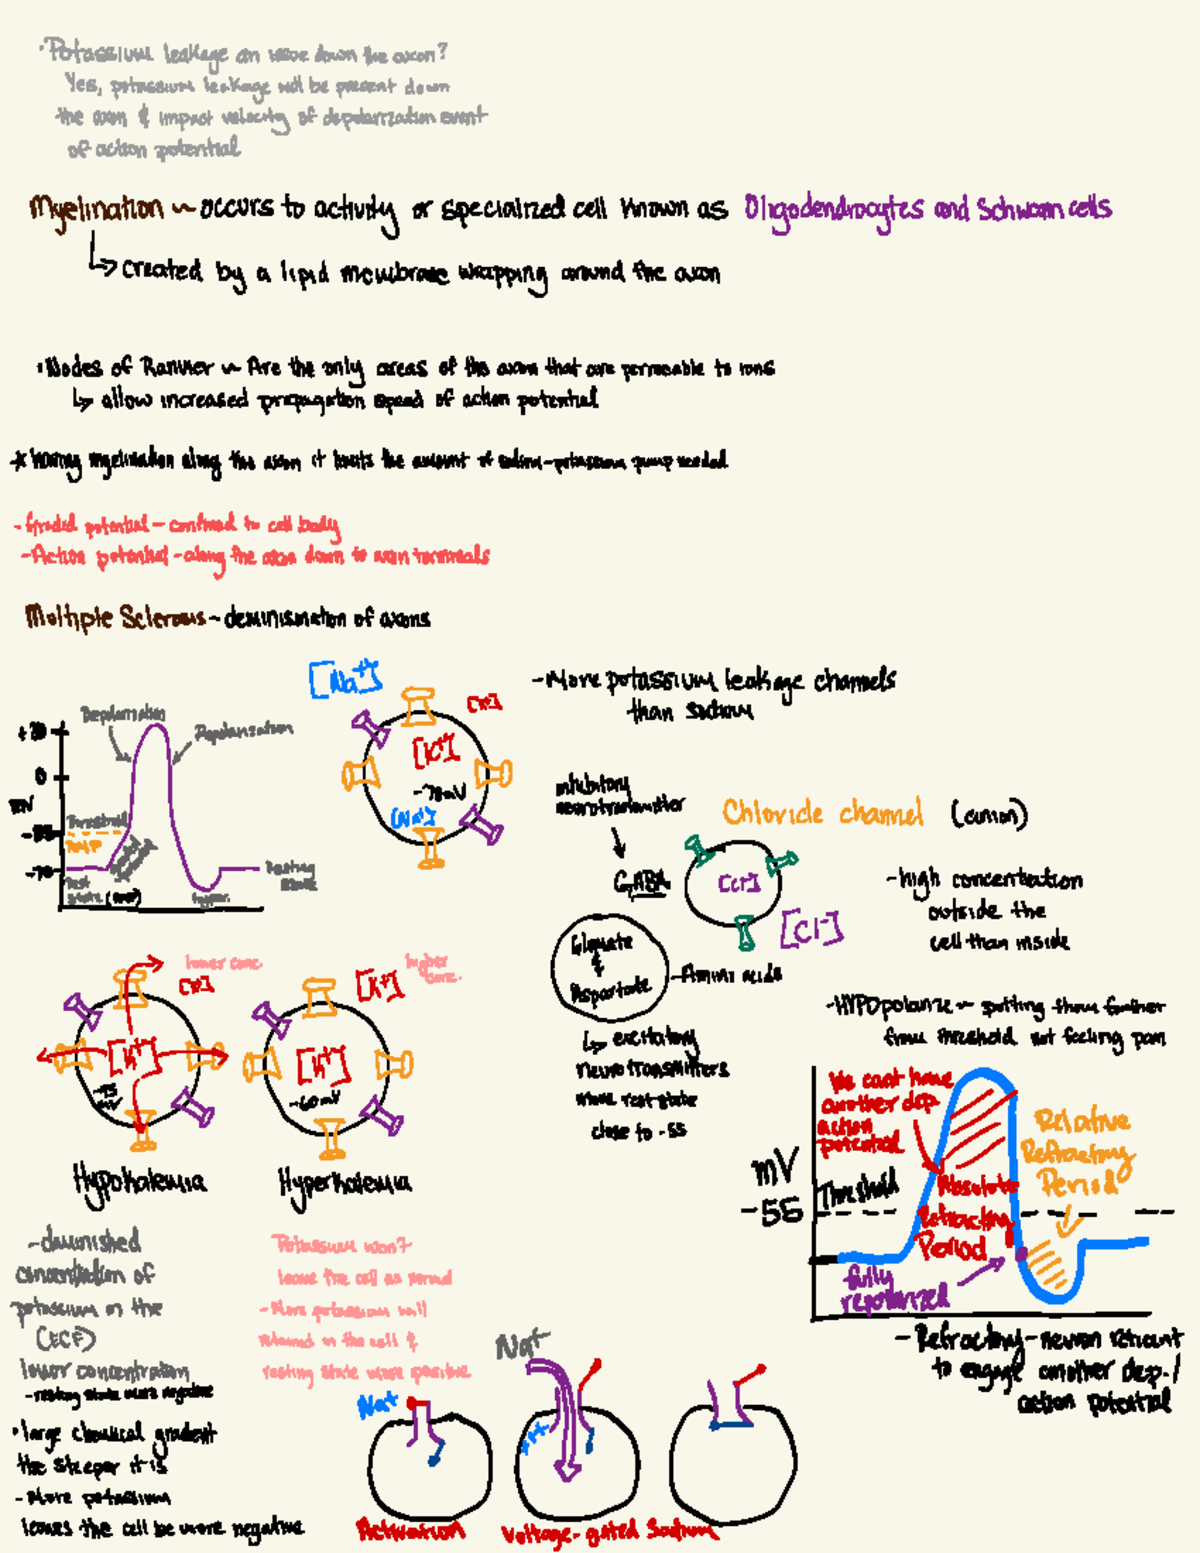 ·Potassium leakage an issue down the axon?
Yes, potassium leakage will be present down
the axon & impact velocity of depolarization event
of action potential
Myelination ~ occurs to activity or specialized cell known as Oligodendrocytes and Schwann cells
↳ created by a lipid membrane wrapping around the axon
·Nodes of Ranvier ~ Are the only areas of the axon that are permeable to ions
↳ allow increased propagation speed of action potential
* having myelination along the axon it limits the amount of sodium-potassium pump needed
- Graded potential - confined to cell body
- Action potential - along the axon down to axon terminals
Multiple Sclerosis - of axons
[Na+]
[K+]
[K+]
-70mV
[Na+]
- More potassium leakage channels
than sodium
Depolarization
Repolarization
+30
0
mV
Threshold
-55
-70
Rest
state
Resting
state
hyper.
inhibitory
neurotransmitter
GABA
Chloride channel (anion)
[Cl-]
[Cl-]
- high concentration
outside the
cell than inside
Glumate
&
Aspartate
- Amino acids
↳ excitatory
neurotransmitters
move rest state
close to -55
- HYPOpolarize - putting them further
from threshold not feeling pain
lower conc.
[K+]
[K+]
-75
mV
Hypokalemia
higher
conc.
[K+]
[K+]
-60mV
Hyperkalemia
- diminished
concentration of
potassium in the
(ECF)
lower concentration
- resting state more negative
· large chemical gradient
the steeper it is
- More potassium
leaves the cell be more negative
Potassium won't
leave the cell as normal
- More potassium will
retained in the cell &
resting state more positive
We cant have
another dep.
action
potential
mV
-55
Threshold
Absolute
Refractory
Period
Relative
Refractory
Period
fully
repolarized
- Refractory - neuron
to engage another dep./
action potential
Na+
Activation
Na+
Voltage-gated Sodium